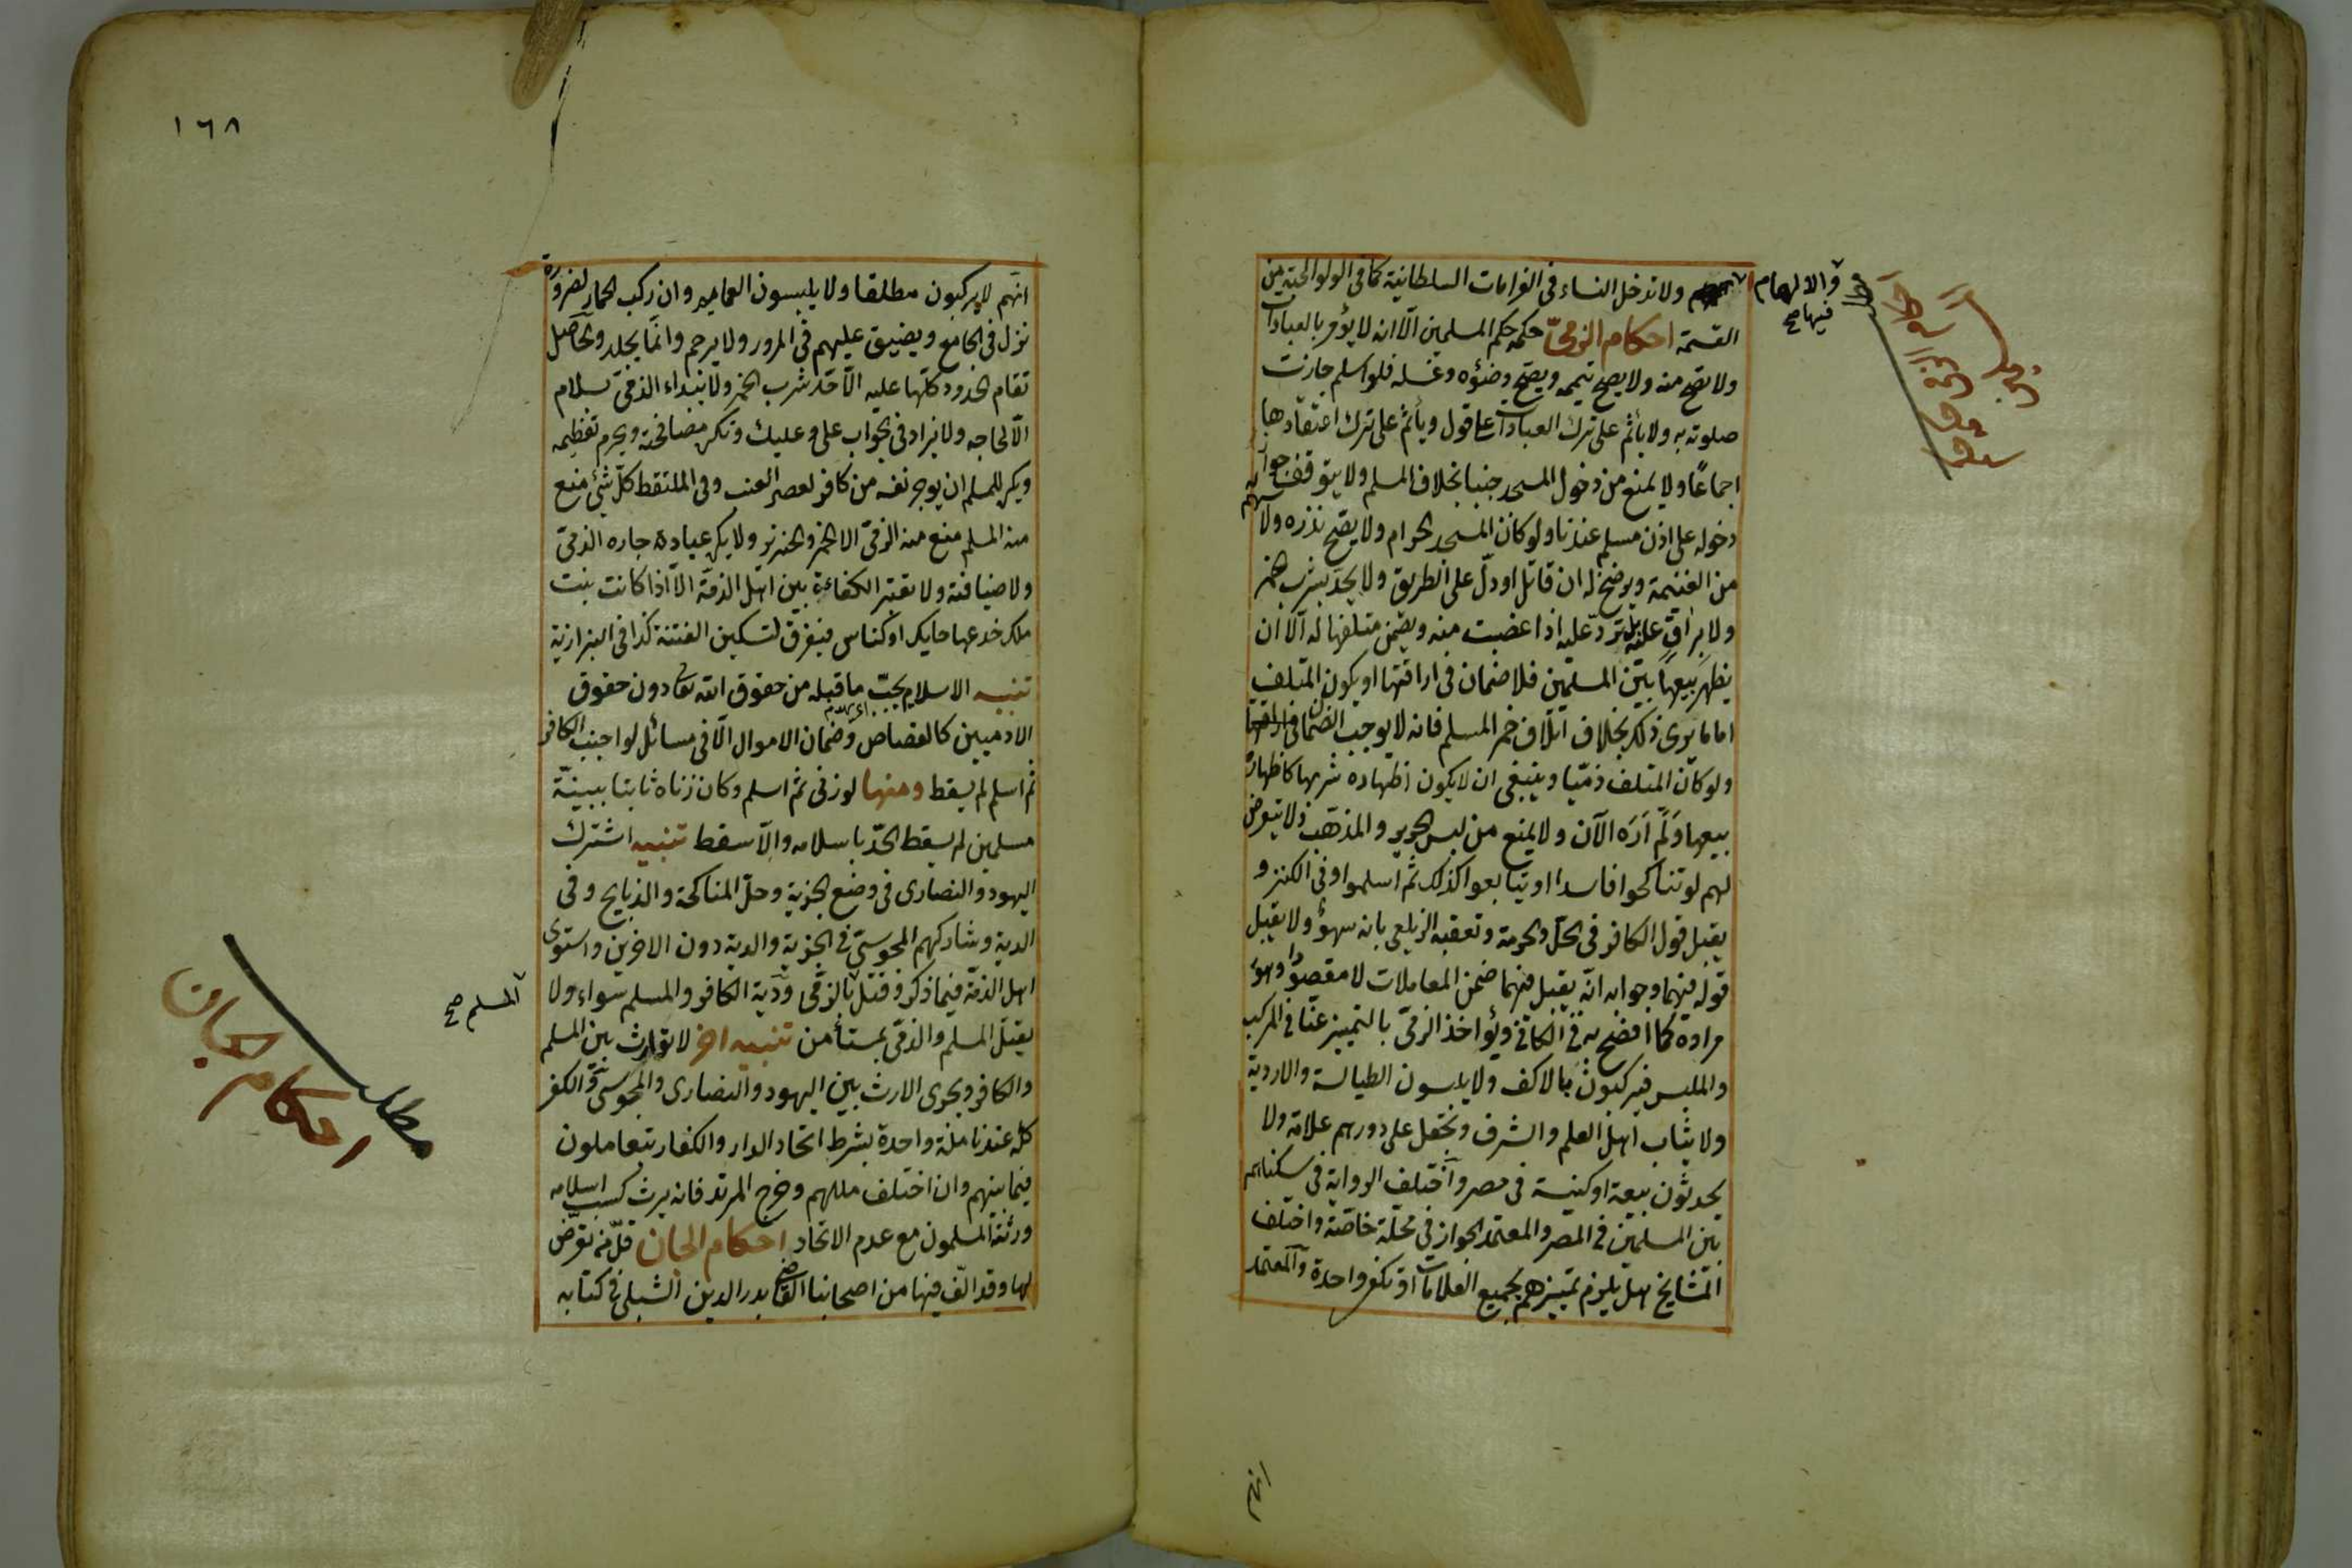 ولا تدخل النساء فى الغرامات السلطانية كما فى الولوالجية من
القسمة احكام الذمىّ حكمه حكم المسلمين الّا انه لا يؤمر بالعبادات
ولا تصح منه ولا يصح تيممه ويصح وضوءه وغسله فلو اسلم جازت
صلوته به ولا يأثم على ترك العبادات على قول ويأثم على ترك اعتقادها
اجماعًا ولا يمنع من دخول المسجد جنبا بخلاف المسلم ولا يتوقف جواز
دخوله على اذن مسلم عندنا ولو كان المسجد الحرام ولا يصح نذره ولا سهم له
من الغنيمة ويرضخ له ان قاتل او دلّ على الطريق ولا يحد بشرب الخمر
ولا يراق عليه بل تردّ عليه اذا غصبت منه ويضمن متلفها له الّا ان
يظهر بيعها بين المسلمين فلا ضمان فى اراقتها او يكون المتلف
اماما يرى ذلك بخلاف اتلاف خمر المسلم فانه لا يوجب الضمان
ولو كان المتلف ذمّيا وينبغى ان لا يكون اظهاره شربها كاظهاره
بيعها ولم اره الآن ولا يمنع من لبس الحرير والمذهب ولا تعرض
لهم لو تناكحوا فاسدا او تبايعوا كذلك ثم اسلموا وفى الكنز و
يقبل قول الكافر فى الحل والحرمة وتعقبه الزيلعى بانه سهو ولا يقبل
قوله فيهما وجوابه انّه يقبل فيهما ضمن المعاملات لا مقصودا وهو
مراده كما افصح به فى الكافى ويؤاخذ الذمى بالتمييز عنّا فى المركب
والملبس فيركبون بالاكف ولا يلبسون الطيالسة والاردية
ولا ثياب اهل العلم والشرف وتجعل على دورهم علامة ولا
يحدثون بيعة او كنيسة فى مصر واختلف الرواية فى سكناهم
بين المسلمين فى المصر والمعتمد الجواز فى محلّة خاصّة واختلف
المشايخ هل يلزم تمييزهم بجميع العلامات او تكفى واحدة والمعتمد
والالهام
فيها صح
انهم
١٦٨
انهم لا يركبون مطلقا ولا يلبسون العمايم وان ركب الحمار لضرورة
نزل فى المجامع ويضيق عليهم فى المرور ولا يرجم وانما يجلد والحاصل
تقام الحدود كلّها عليه الّا حد شرب الخمر ولا يبداء الذمىّ بسلام
الّا لحاجه ولا يزاد فى الجواب على وعليك وتكره مصافحته ويحرم تعظيمه
ويكره للمسلم ان يوجر نفسه من كافر لعصر العنب وفى الملتقط كلّ شئ منع
منه المسلم منع منه الذمّى الا الخمر والخنزير ولا يكره عيادة جاره الذمىّ
ولا ضيافته ولا تعتبر الكفاءة بين اهل الذمّة الّا اذا كانت بنت
ملك خدعها حايك او كناس فيفرق لتسكين الفتنة كذا فى البزازية
تنبيه الاسلام يجبّ ما قبله من حقوق الله تعا دون حقوق
الادميين كالقصاص وضمان الاموال الّا فى مسائل لو اجنب الكافر
ثم اسلم لم يسقط ومنها لو زنى ثم اسلم وكان زناه ثابتا ببينة
مسلمين لم يسقط الحدّ باسلامه والّا سقط تنبيه اشترك
اليهود والنصارى فى وضع الجزية وحل المناكحة والذبايح وفى
الدية وشاركهم المجوسى فى الجزية والدية دون الاخرين واستوى
اهل الذمّة فيما ذكر وقتل بالذمى ودية الكافر والمسلم سواء ولا
يقتل المسلم والذمّى بمستأمن تنبيه اخر لا توارث بين المسلم
والكافر ويجرى الارث بين اليهود والنصارى والمجوسى والكفر
كله عندنا ملة واحدة بشرط اتحاد الدار والكفار يتعاملون
فيما بينهم وان اختلف مللهم وخرج المرتد فانه يرث كسب اسلامه
ورثته المسلمون مع عدم الاتحاد احكام الجان قلّ من تعرّض
لها وقد الّف فيها من اصحابنا القاضى بدر الدين الشبلى فى كتابه
المسلم صح
مطلب
احكام الجان